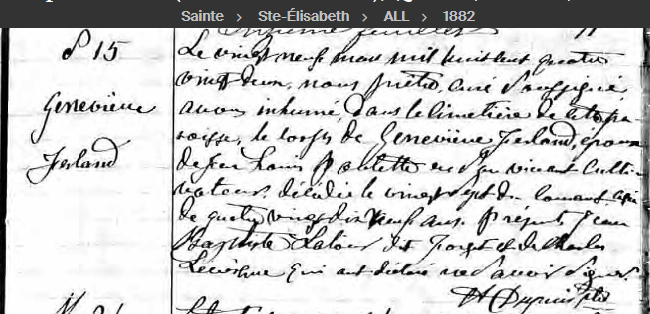 Sainte > Ste-Élisabeth > ALL > 1882
S 15
Geneviève
Ferland
Le vingt neuf mars mil huit cent quatre
vingt deux, nous prêtre, curé soussigné
avons inhumé, dans le cimetière de cette pa-
roisse, le corps de Geneviève Ferland, épouse
de feu Louis Paulette en son vivant culti-
vateur, décédée le vingt sept du courant âgée
de quatre vingt dix neuf ans. Présents Jean
Baptiste Latour dit Forget et de Charles
qui ont déclaré ne savoir signer.
Dupuis ptre